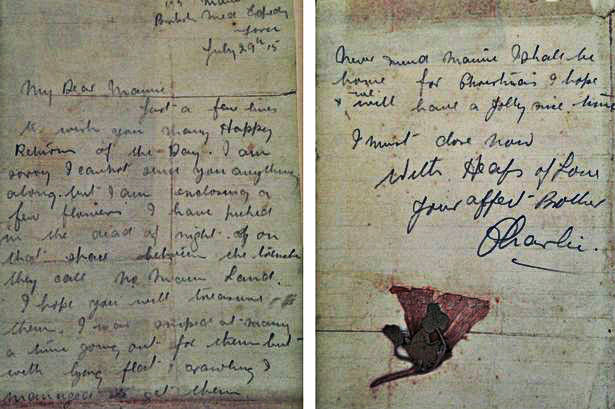 British Med Expedy
Force
July 29th 15
My Dear Mamie
Just a few lines
to wish you Many Happy
Return of the Day. I am
sorry I cannot send you anything
along. but I am enclosing a
few flowers I have picked
in the dead of night. of on
that space between the trenches
they call No Mans Land.
I hope you will treasure
them. I was sniped at many
a time going out for them but
with lying flat & crawling I
managed to get them
Never mind Mamie I shall be
home for Christmas I hope
& we will have a Jolly nice time
I must close now
With Heaps of Love
Your affect Brother
Charlie.